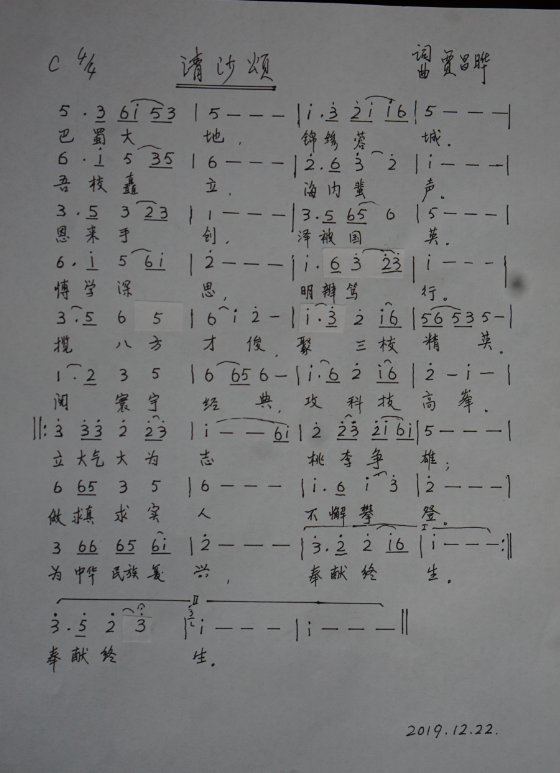 C 4/4 清沙颂 词曲 贾昌晔
5 · 3 6 i 5 3 | 5 - - - | i · 3 2 i i 6 | 5 - - - |
巴蜀大地, 锦绣蓉城.
6 · i 5 3 5 | 6 - - - | 2 · 6 3 2 | i - - - |
吾校矗立, 海内蜚声.
3 · 5 3 2 3 | 1 - - - | 3 · 5 6 5 6 | 5 - - - |
恩来手创, 泽被国英.
6 · i 5 6 i | 2 - - - | i · 6 3 2 3 | i - - - |
博学深思, 明辨笃行.
3 · 5 6 5 | 6 i 2 - | i · 3 2 i 6 | 5 6 5 3 5 - |
揽八方才俊, 聚三校精英.
1 · 2 3 5 | 6 6 5 6 - | i · 6 2 i 6 | 2 - i - |
闻寰宇经典, 攻科技高峯.
||: 3 3 3 2 2 3 | i - - 6 i | 2 2 3 2 i 6 i | 5 - - - |
立大气大为志 桃李争雄;
6 6 5 3 5 | 6 - - - | i · 6 i 3 | 2 - - - |
做求真求实人 不懈攀登.
I.
3 6 6 6 5 6 i | 2 - - - | 3 · 2 2 i 6 | i - - - :||
为中华民族复兴, 奉献终生.
II
3 · 5 2 3 | i - - - | i - - - ||
奉献终生.
2019.12.22.